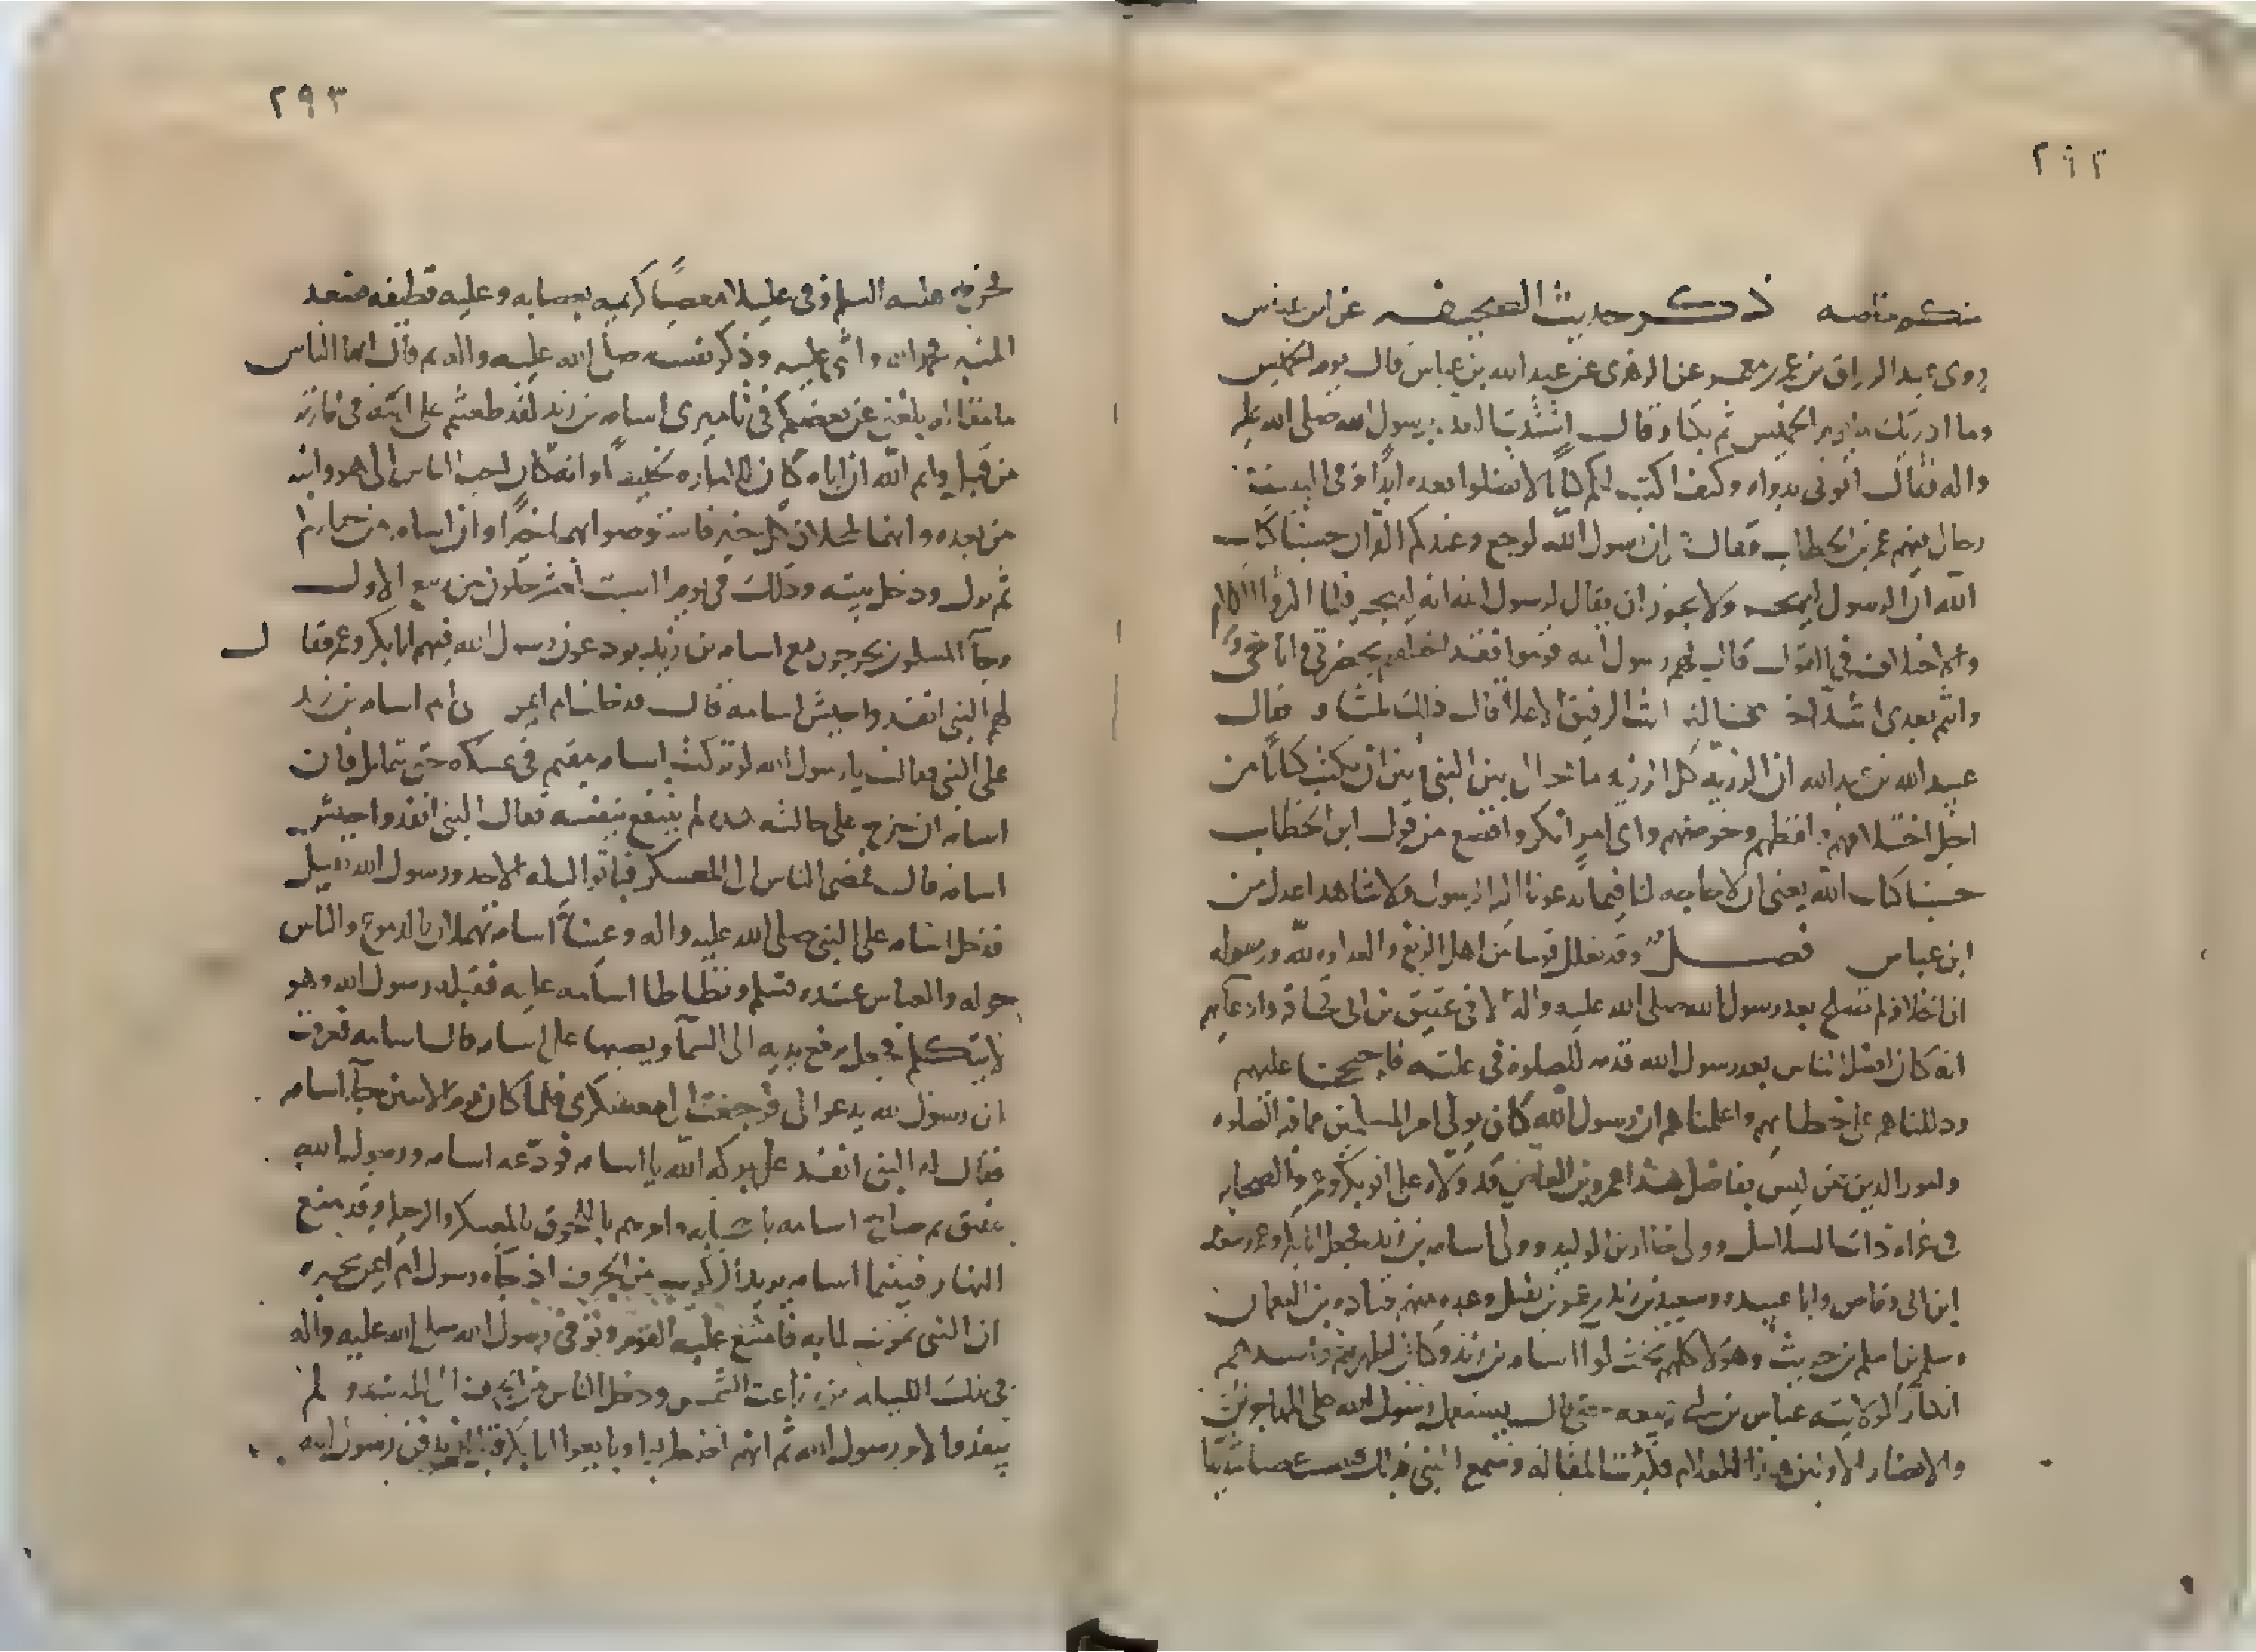 ٢٩٢
ذكر حديث الصحيفه عن ابن عباس
روى عبد الرزاق بن معمر عن الزهرى عن عبد الله بن عباس قال يوم الخميس
وما ادريك ما يوم الخميس ثم بكا وقال رسول الله صلى الله عليه
واله فقال اتونى بدواه وكتف اكتب لكم كتابا لا تضلوا بعده ابدا وفى البيت
رجال فيهم عمر بن الخطاب فقال ان رسول الله لوجع وعندكم القران حسبنا كتاب
الله ان الرسول ليهجر ولا يجوز ان يقال لرسول الله انه ليهجر فلما
والاختلاف فى القول قال لهم رسول الله قوموا
وانتم بعدى اشد الرفيق الاعلا قال فقال
عبيد الله بن عبد الله ان الرزيه كل الرزيه ما حال بين النبى وبين ان يكتب كتابا من
اجل اختلافهم وخوضهم واى امر انكر وافضع من قول ابن الخطاب
حسبنا كتاب الله يعنى ان لا حاجه لنا فيما يدعونا اليه الرسول ولا شاهد اعدل من
ابن عباس فصل وقد تعلل قوما من اهل الزيغ والعداوه لله ورسوله
ان الخلافه لم تصلح بعد رسول الله صلى الله عليه واله الا فى عتيق بن ابى قحافه وادعايهم
انه كان افضل الناس بعد رسول الله قدمه للصلوه فى علته فاحتججنا عليهم
ودللناهم على خطايهم واعلمناهم ان رسول الله كان يولى امر المسلمين
وامور الدين من ليس بفاضل هذا عمرو بن العاص قد ولاه على ابو بكر وعمر والصحابه
فى غزاه ذات السلاسل وولى خالد بن الوليد وولى اسامه بن زيد فجعل ابا بكر وعمر وسعد
ابن ابى وقاص وابا عبيده وسعيد بن زيد بن عمرو بن نفيل وعده منهم قتاده بن النعمان
وسلمه بن اسلم بن حريث وهؤلا كلهم تحت لوا اسامه بن زيد وكان
عياش بن ابى ربيعه حتى قال يستعمل رسول الله على المهاجرين
والانصار الاولين هذا الغلام فكثرت المقاله وسمع النبى ذلك
٢٩٣
فخرج عليه السلم وهى عليلا معصبا راسه بعصابه وعليه قطيفه فصعد
المنبر فحمد الله واثنى عليه وذكر نفسه صلى الله عليه واله ثم قال ايها الناس
ما مقاله بلغتنى عن بعضكم فى تاميرى اسامه بن زيد لقد طعنتم على ابيه فى امارته
من قبله وايم الله ان اباه كان للاماره خليقا وانه كان احب الناس الى هو وابنه
من بعده وانهما لمحلان كل خير فاستوصوا بهما خيرا وان اسامه من خياركم
ثم نزل ودخل بيته وذلك فى يوم السبت لعشر خلون من ربيع الاول
وجآ المسلمون يخرجون مع اسامه بن زيد يودعون رسول الله فيهم ابا بكر وعمر فقال
لهم النبى انفذوا جيش اسامه قال فدخلت ام ايمن ام اسامه بن زيد
على النبى فقالت يا رسول الله لو تركت اسامه يقيم فى عسكره حتى تتماثل فان
اسامه ان خرج على حالته هذه لم ينتفع بنفسه فقال النبى انفذوا جيش
اسامه قال فمضى الناس الى المعسكر فباتوا ليله الاحد ورسول الله ثقيل
فدخل اسامه على النبى صلى الله عليه واله وعينا اسامه تهملان بالدموع والناس
حوله والعباس عنده فسلم وتطاطا اسامه عليه فقبله رسول الله وهو
لا يتكلم فجعل يرفع يديه الى السمآ ويصبها على اسامه قال اسامه فعرفت
ان رسول الله يدعو الى فرجعت الى معسكرى فلما كان يوم الاثنين جآ اسامه
فقال له النبى انفذ على بركه الله يا اسامه فودعه اسامه ورسول الله
مفيق ثم صاح اسامه باصحابه وامرهم باللحوق بالمعسكر والرحيل وقد متع
النهار فبينما اسامه يريد الركوب من الجرف اذ جآه رسول ام ايمن يخبره
ان النبى يموت لما به فامتنع عليه القوم وتوفى رسول الله صلى الله عليه واله
فى ذلك الليله حين زاغت الشمس ودخل الناس من الجرف الى المدينه ولم
ينفذوا لامر رسول الله ثم انهم وبايعوا ابا بكر قبل ان يدفن رسول الله